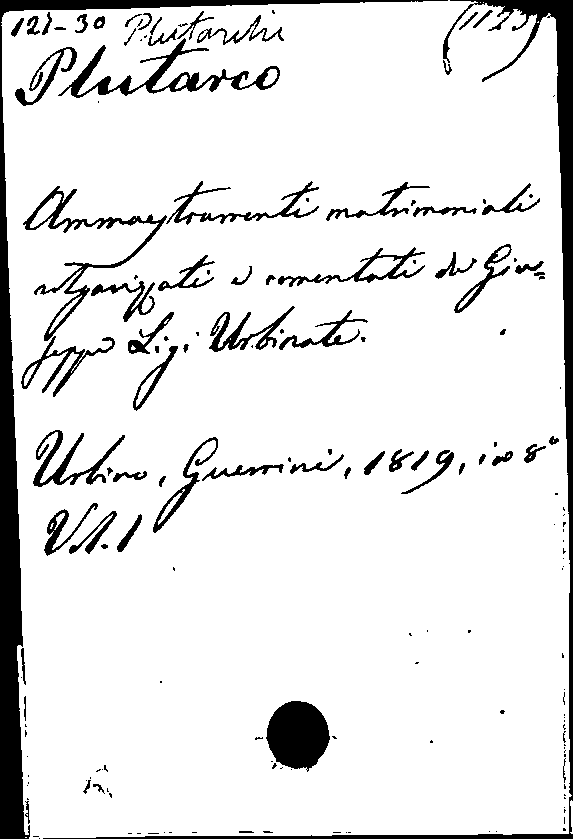 127-30 Plutarchi (1123)
Plutarco
Ammaestramenti matrimoniali
volgarizzati e comentati da Giu=
seppe Ligi Urbinate.
Urbino, Guerrini, 1819, in 8°
Vol. 1